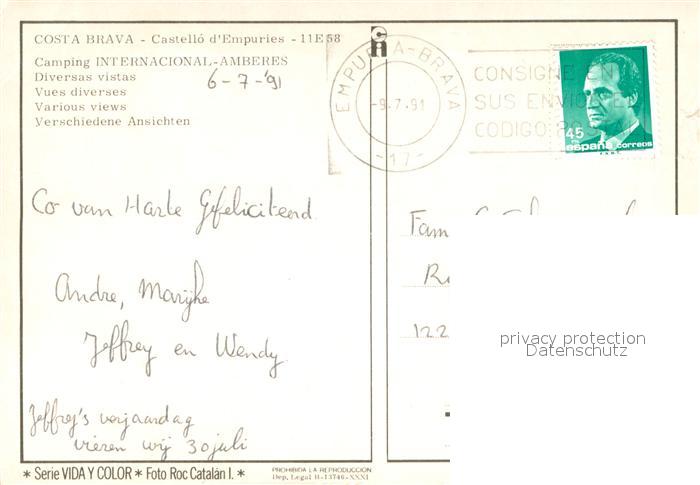 COSTA BRAVA - Castelló d'Empuries - 11E58
Camping INTERNACIONAL-AMBERES
Diversas vistas
Vues diverses
Various views
Verschiedene Ansichten
6-7-'91
Co van Harte Gefeliciteerd
Andre, Marijke
Jeffrey en Wendy
Jeffrey's verjaardag
vieren wij 30 juli
* Serie VIDA Y COLOR * Foto Roc Catalán I. *
PROHIBIDA LA REPRODUCCION
Dep. Legal B-13746-XXXI
EMPURIA-BRAVA
-9.7.91
-17-
CONSIGNE EN
SUS ENVIOS EL
CODIGO
45
españa correos
Fam
122
privacy protection
Datenschutz